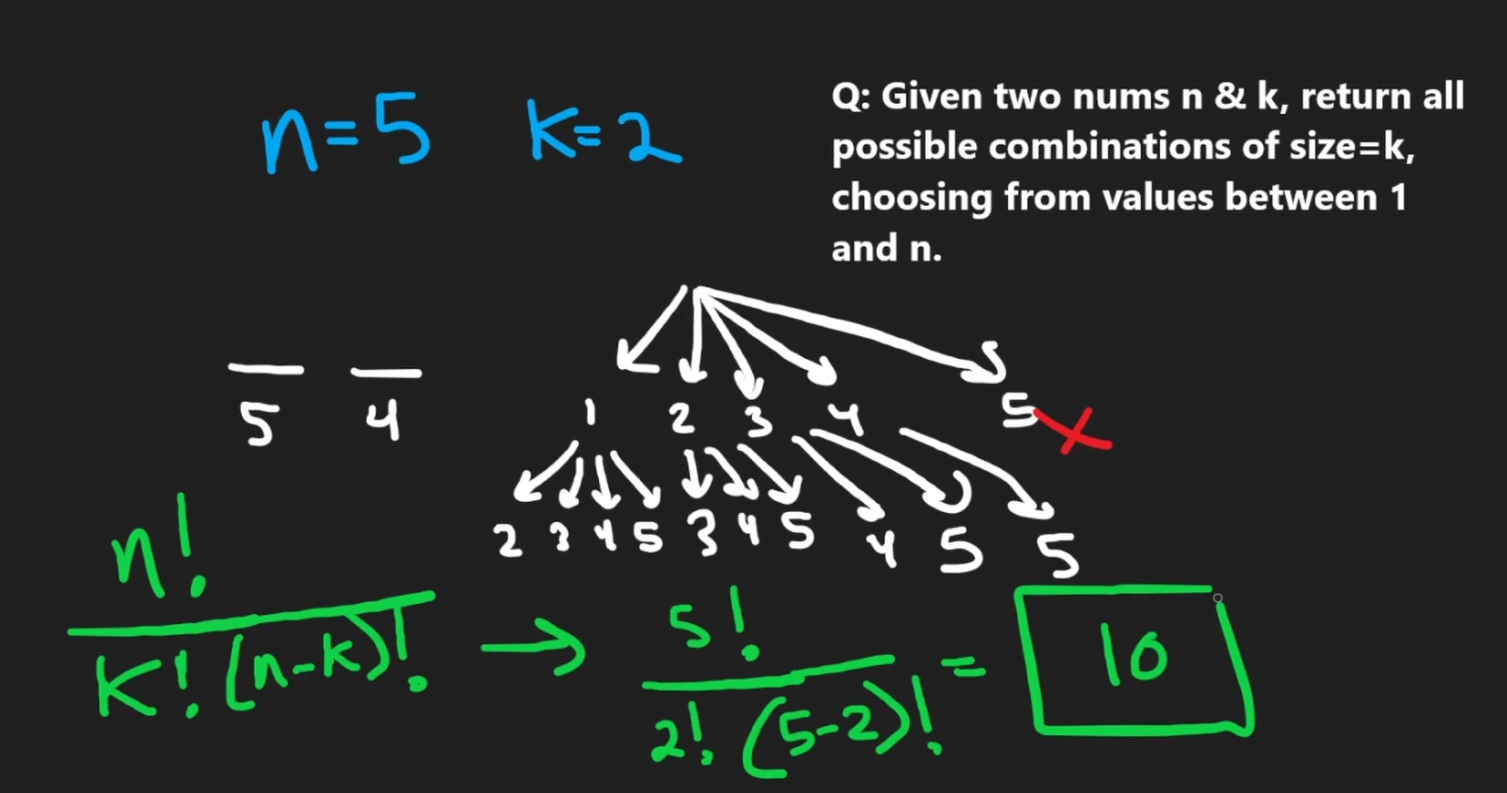 n=5 k=2
Q: Given two nums n & k, return all
possible combinations of size=k,
choosing from values between 1
and n.
5 4
1 2 3 4 5
2 3 4 5 3 4 5 4 5 5
n!
k! (n-k)!
5!
2! (5-2)!
= 10